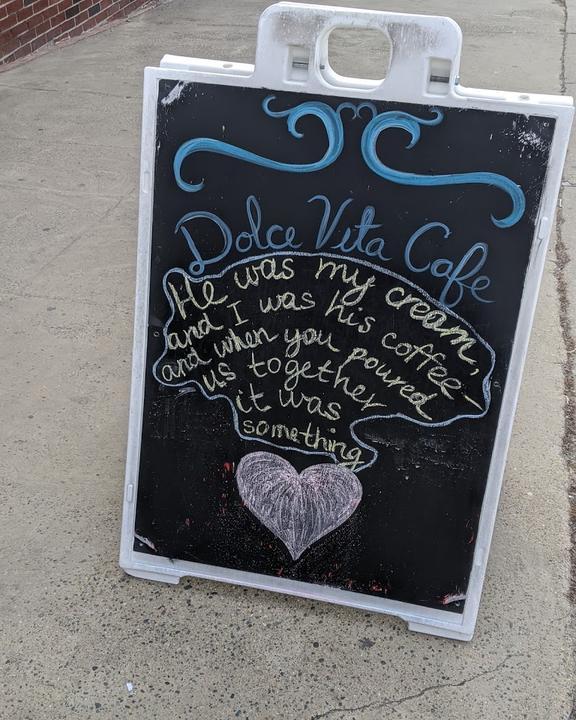 Dolce Vita Cafe
He was my cream,
and I was his coffee-
and when you poured
us together
it was
something